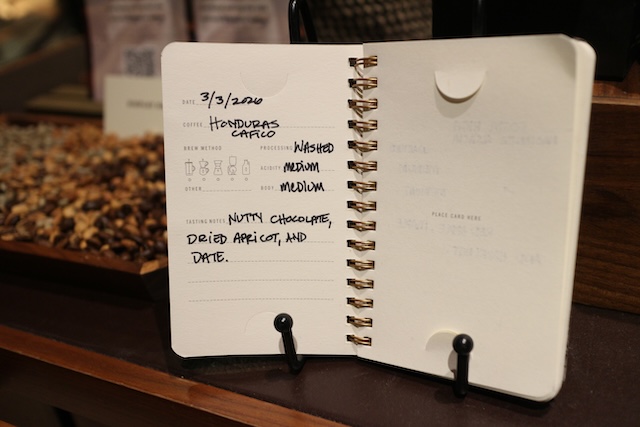 DATE 3/3/2020
COFFEE HONDURAS
CAFICO
BREW METHOD
PROCESSING WASHED
ACIDITY MEDIUM
OTHER
BODY MEDIUM
TASTING NOTES NUTTY CHOCOLATE,
DRIED APRICOT, AND
DATE.
PLACE CARD HERE